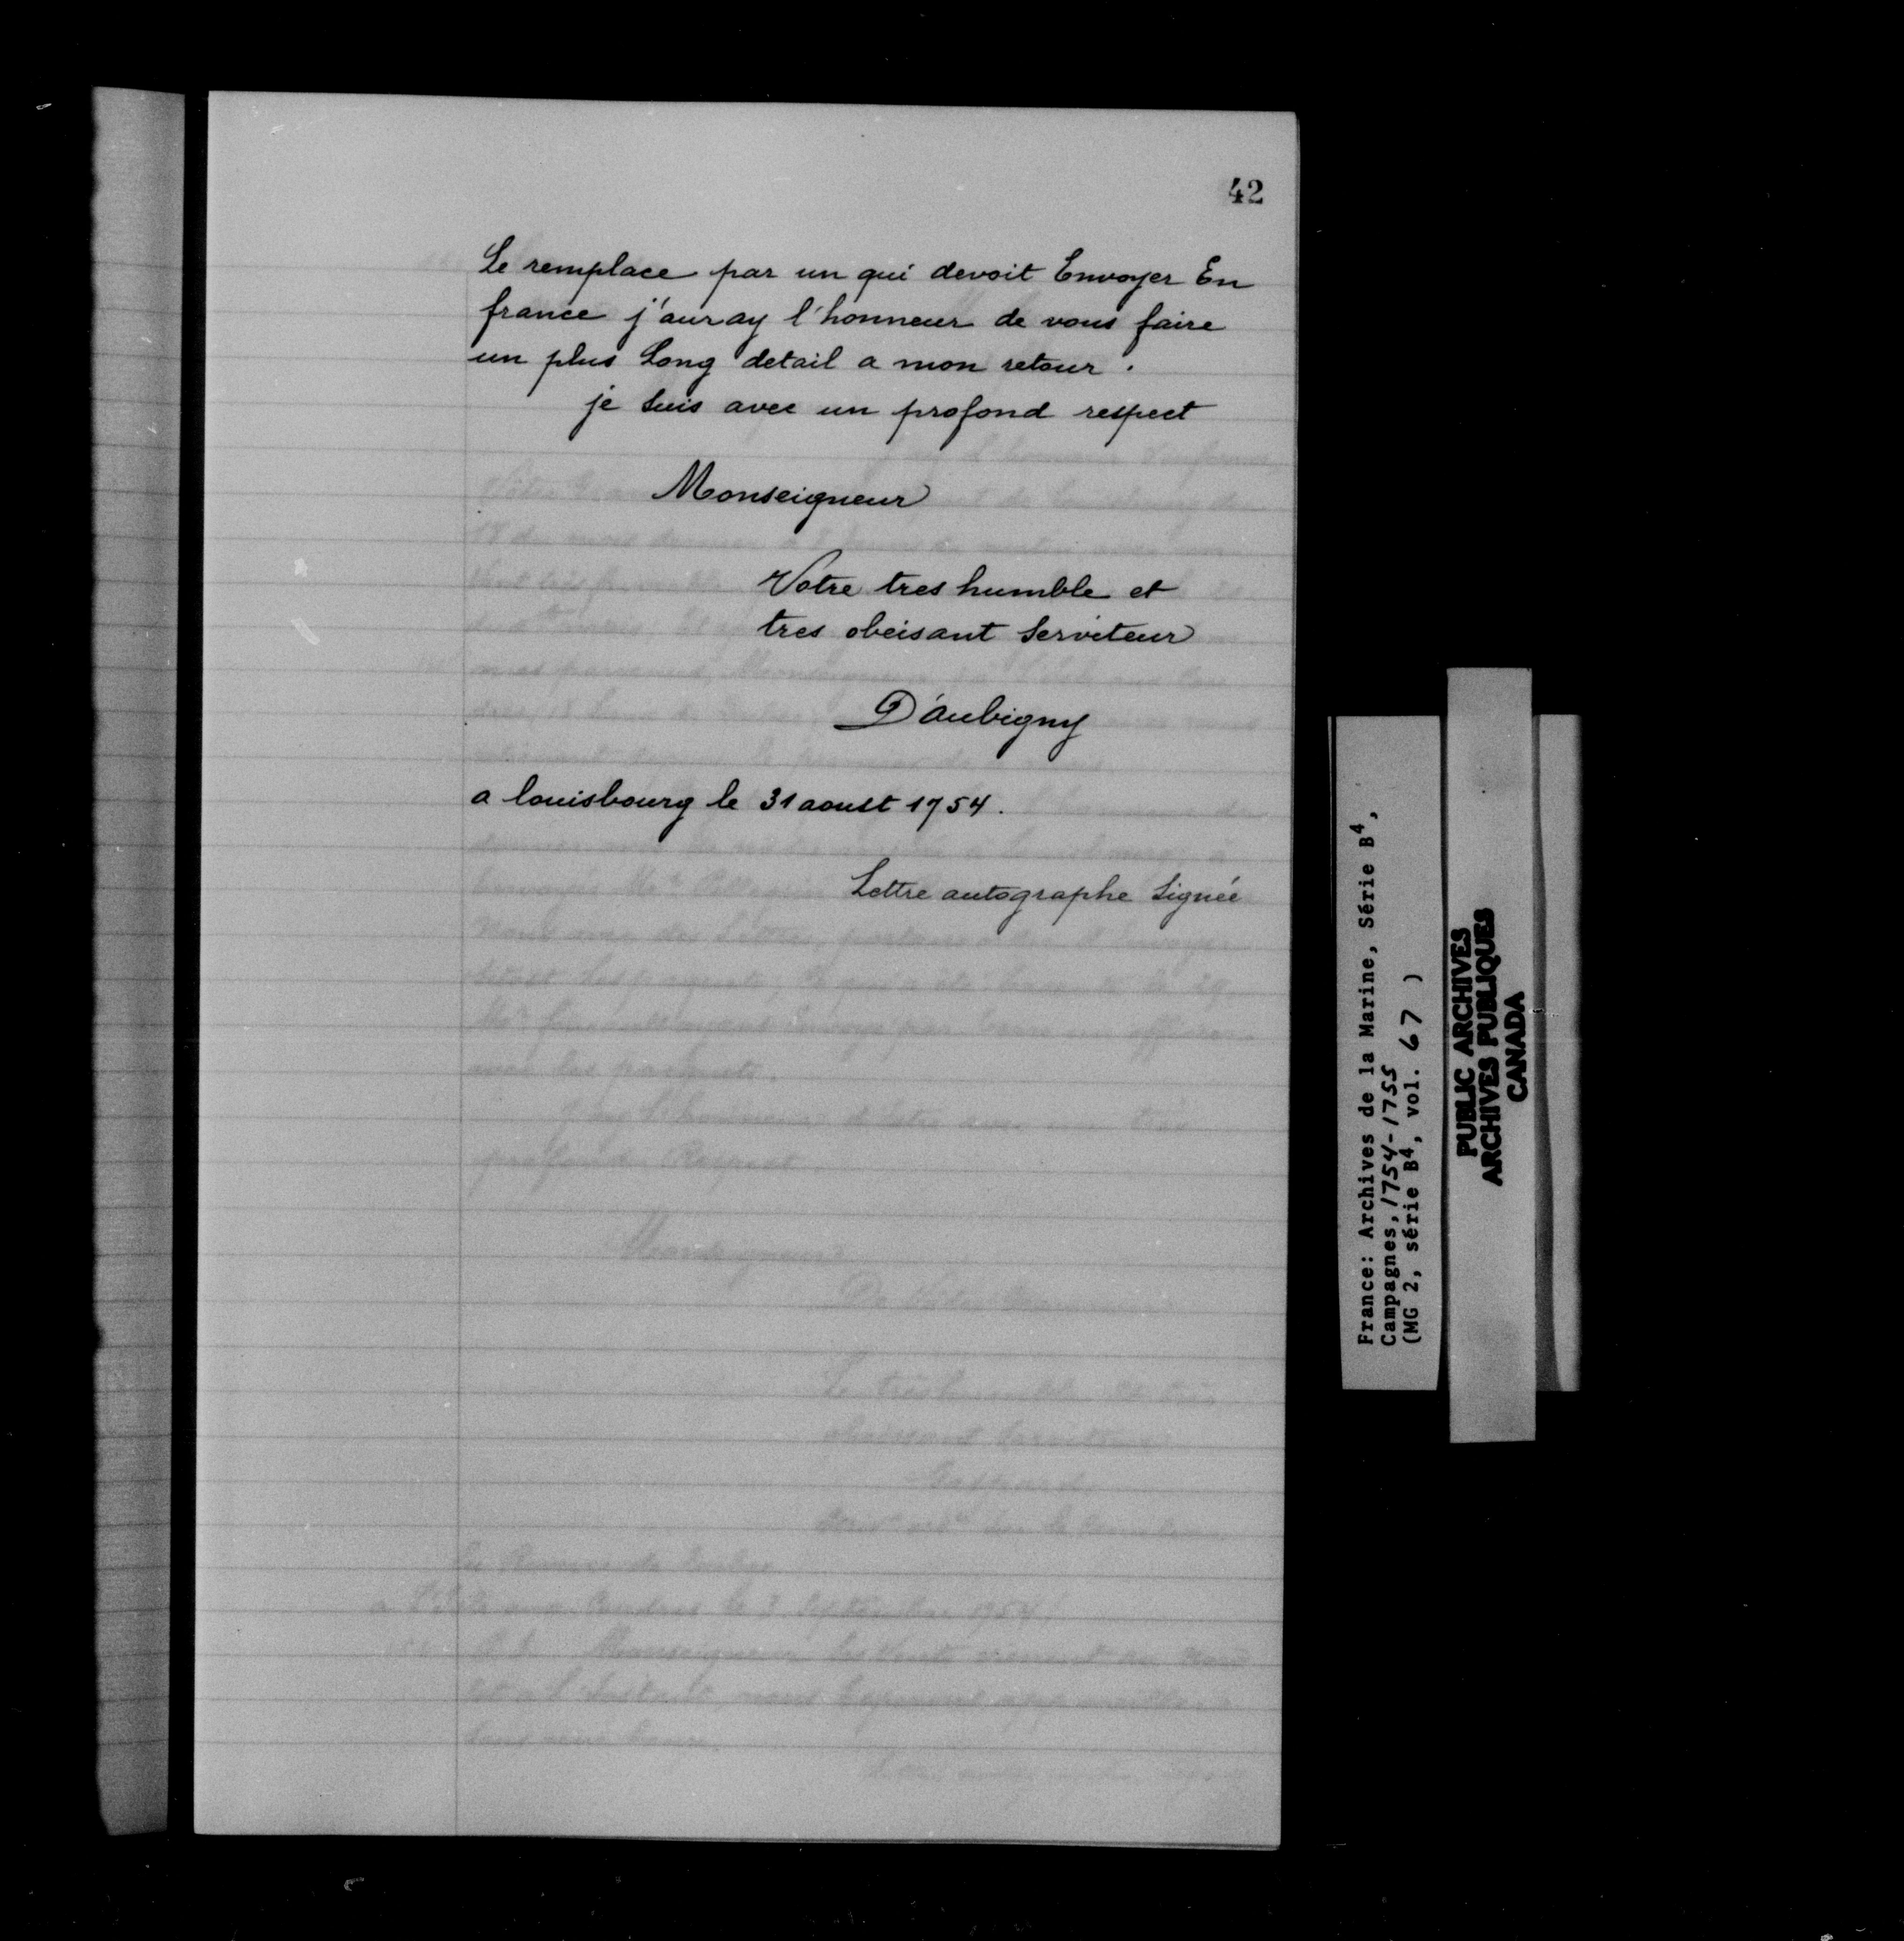 42
Le remplace par un qui devoit Envoyer En
france j'auray l'honneur de vous faire
un plus Long detail a mon retour.
je suis avec un profond respect
Monseigneur
Votre tres humble et
tres obeisant Serviteur
D'aubigny
a louisbourg le 31 aoust 1754.
Lettre autographe Signée
France: Archives de la Marine, Série B4,
Campagnes, 1754-1755
(MG 2, série B4, vol. 67 )
PUBLIC ARCHIVES
ARCHIVES PUBLIQUES
CANADA